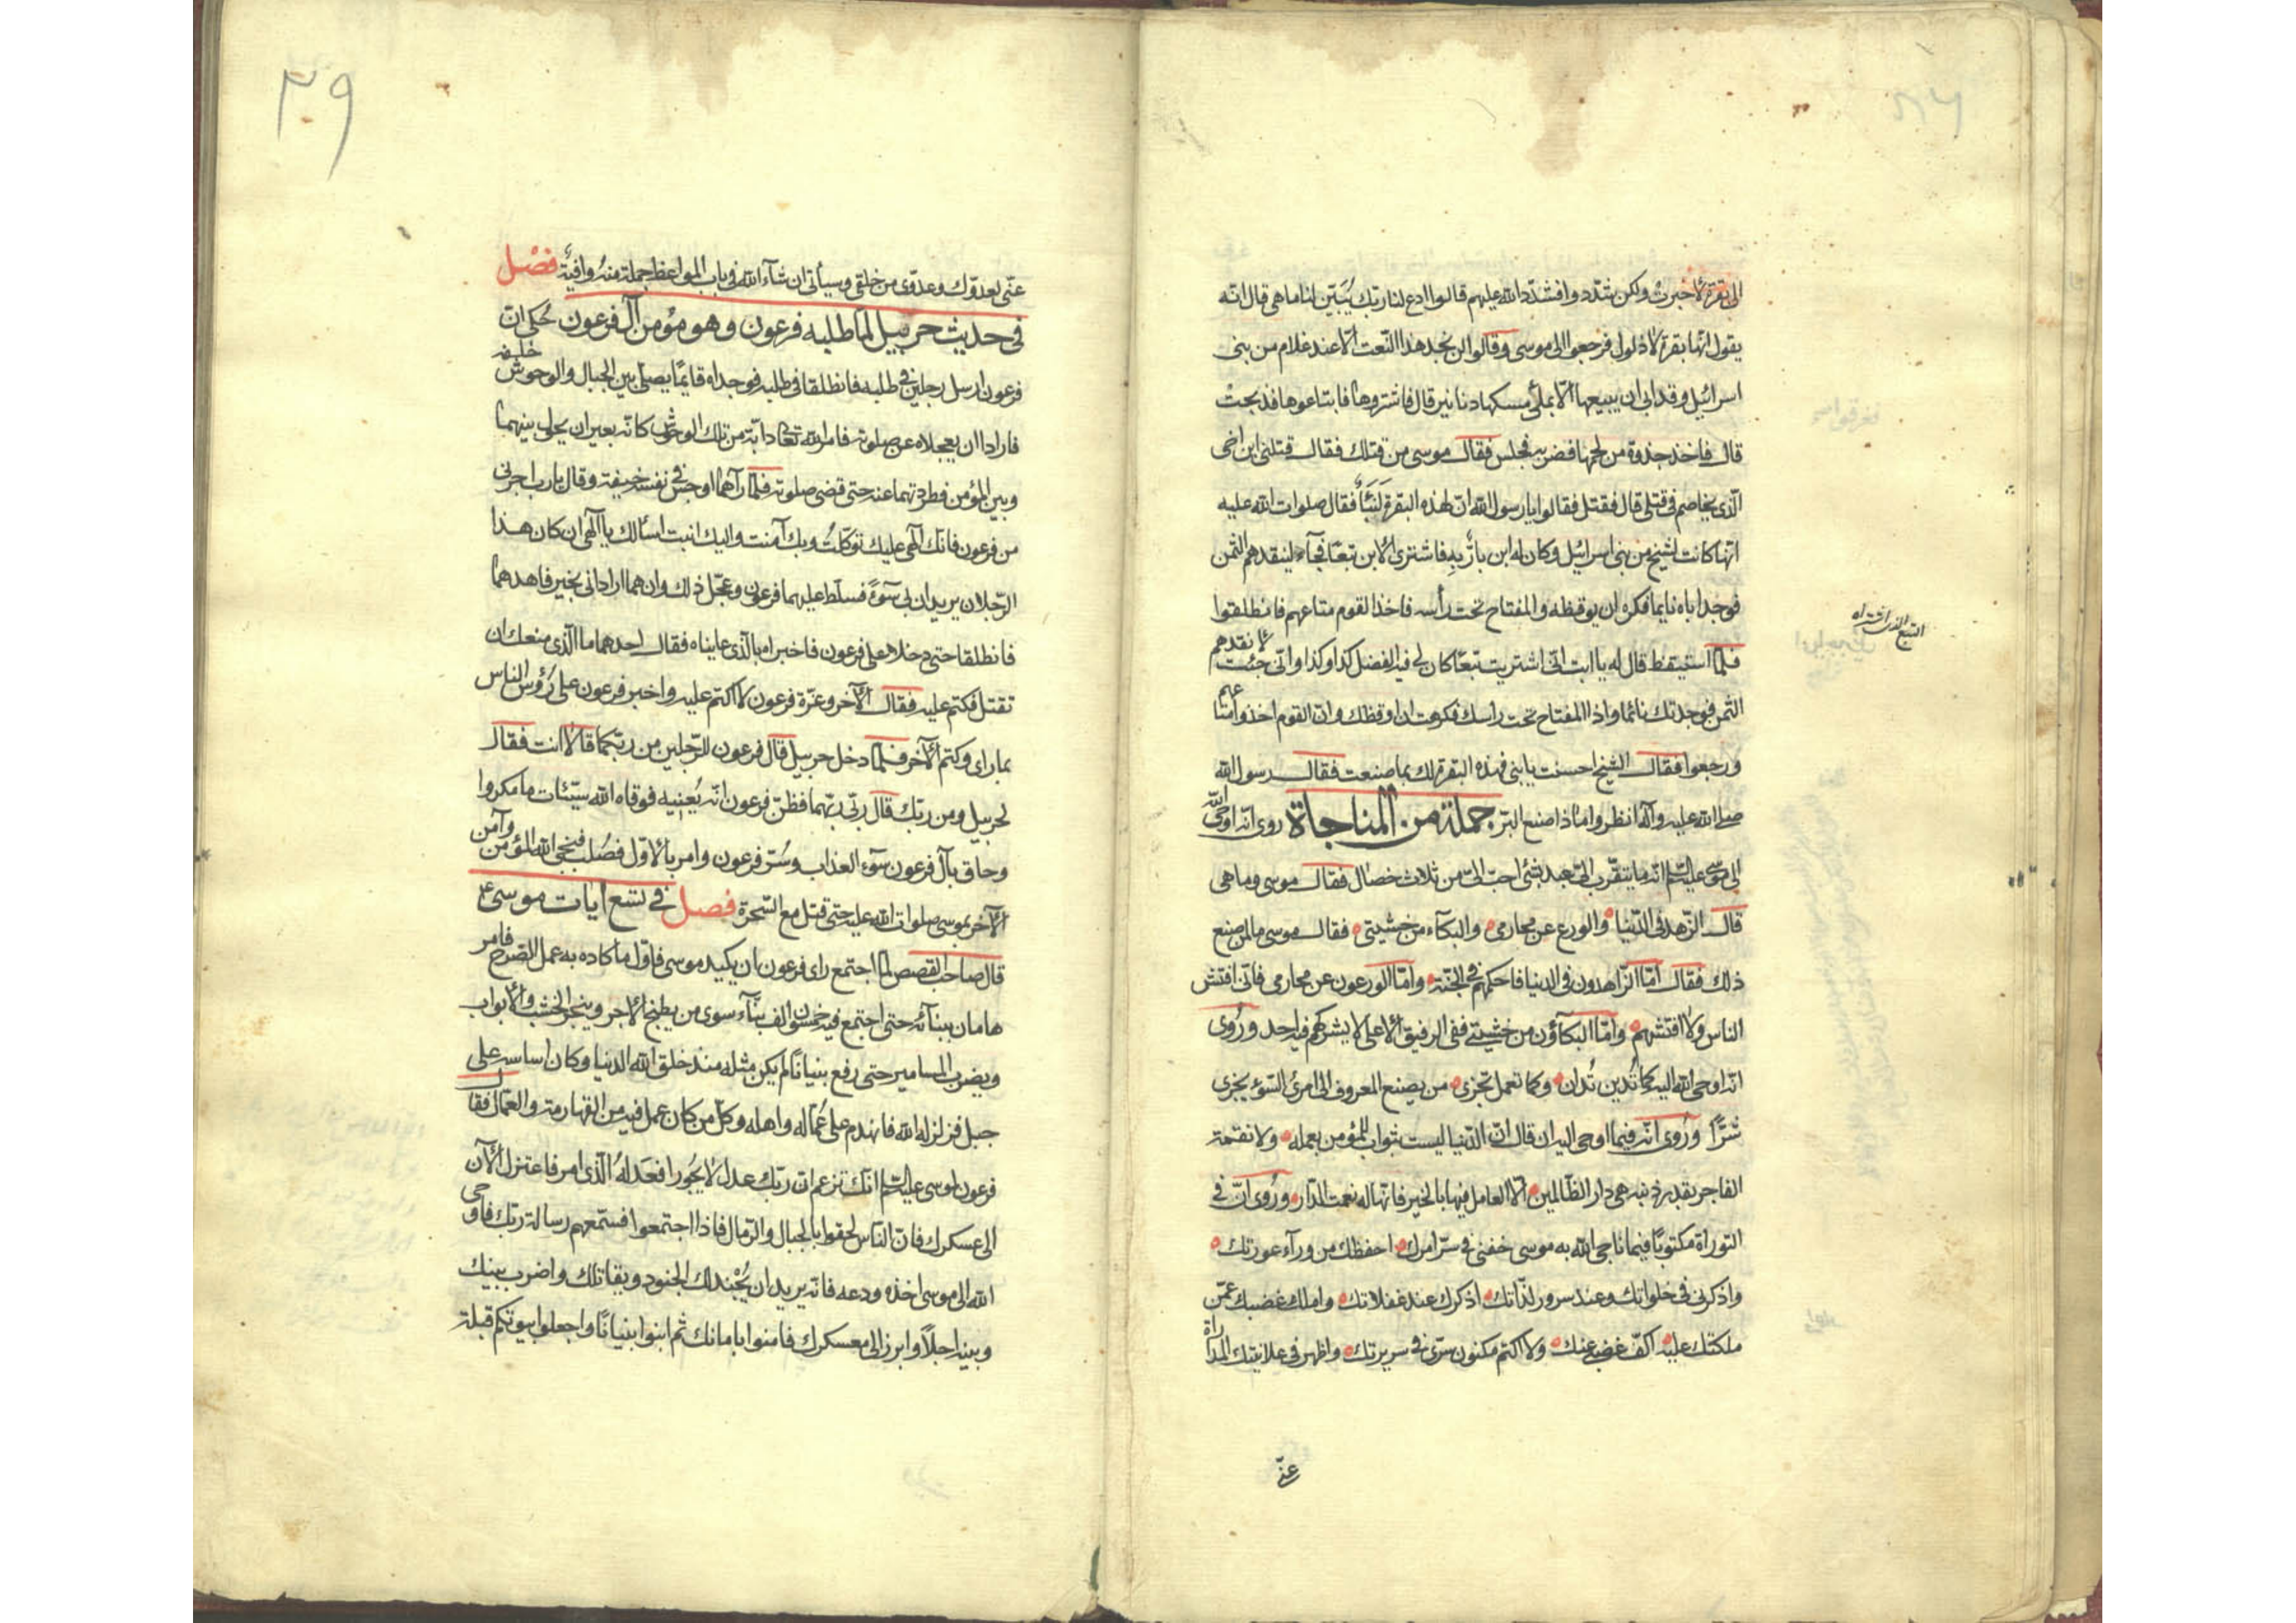 الى بقرة لأخبرت ولكن شدّدوا فشدّد الله عليهم قالوا ادع لنا ربّك يُبَيّن لنا ما هى قال انّه
يقول انّها بقرة لا ذلول فرجعوا الى موسى وقالوا لن نجد هذا النّعت الّا عند غلام من بنى
اسرائيل وقد ابى ان يبيعها الّا بملئ مسكها دنانير قال فاشتروها فابتاعوها فذبحت
قال فاخذ جذوة من لحمها فضربه فجلس فقال موسى من قتلك فقال قتلنى ابن اخى
الّذى يخاصم فى قتلى قال فقتل فقالوا يا رسول الله انّ لهذه البقرة لَنَبَأً فقال صلوات الله عليه
انّها كانت لشيخ من بنى اسرائيل وكان له ابن بارٌّ به فاشترى الابن تبعًا فجآء لينقدهم الثمن
فوجد اباه نايما فكره ان يوقظه والمفتاح تحت رأسه فاخذ القوم متاعهم فانطلقوا
فلمّا استيقظ قال له يا ابت انّى اشتريت تبعًا كان لى فيه الفضل كذا وكذا وانّى جئت لأنقدهم
الثمن فوجدتك نائما واذا المفتاح تحت راسك فكرهت ان اوقظك وانّ القوم اخذوا متاعهم
ورجعوا فقال الشيخ احسنت يا بنى فهذه البقرة لك بما صنعت فقال رسول الله
صلى الله عليه وآله انظروا ماذا صنع البرّ جملة من المناجاة روى انّه اوحى الله
الى موسى عليه السّلم انّه ما يتقرّب الىّ عبد بشئ احبّ الىّ من ثلاث خصال فقال موسى وما هى
قال الزّهد فى الدّنيا والورع عن محارمى والبكآء من خشيتى فقال موسى ما لمن صنع
ذلك فقال امّا الزّاهدون فى الدنيا فاحكمهم فى الجنّة وامّا الورعون عن محارمى فانّى افتش
الناس ولا افتشهم وامّا البكآؤن من خشيتى ففى الرفيق الاعلى لا يشركهم فيه احد ورُوى
انّه اوحى الله اليه كما تُدين تُدان وكما تعمل تجزى من يصنع المعروف الى امرئ السّوء يجزى
شرًّا ورُوى انّه فيما اوحى اليه ان قال انّ الدّنيا ليست بثواب للمؤمن بعمله ولا نقمة
الفاجر بقدر ذنبه هى دار الظّالمين الّا العامل فيها بالخير فانّها له نعمت الدّار ورُوى انّ فى
التوراة مكتوبًا فيما ناجى الله به موسى خفنى فى سرّ امرك احفظك من ورآء عورتك
واذكرنى فى خلواتك وعند سرور لذّاتك اذكرك عند غفلاتك واملك غضبك عمّن
ملكتك عليه اكفّ غضبى عنك ولا اكتم مكنون سرّى فى سريرتك واظهر فى علانيتك المداراة
عنّى
التبع الذى اشتراه
٣٩
عنّى لعدوّك وعدوّى من خلقى وسيأتى ان شآء الله فى باب المواعظ جملة منه وافيةٌ فصل
فى حديث حزبيل لمّا طلبه فرعون وهو مؤمن آل فرعون حُكى انّ
فرعون ارسل رجلين فى طلبه فانطلقا فى طلبه فوجداه قايمًا يصلّى بين الجبال والوحوش خلفه
فارادا ان يعجلاه عن صلوته فامر الله تعالى دابّة من تلك الوحوش كانّه بعير ان يحلى بينهما
وبين المؤمن فطردتهما عنه حتى قضى صلوته فلمّا رآهما اوجس فى نفسه خيفة وقال يا رب اجرنى
من فرعون فانّك الٓهى عليك توكّلت وبك آمنت واليك انبت اسألك يا الٓهى ان كان هذا
الرّجلان يريدان بى سوءً فسلّط عليهما فرعون وعجّل ذلك وان هما ارادانى بخير فاهدهما
فانطلقا حتى دخلا على فرعون فاخبراه بالّذى عايناه فقال احدهما ما الّذى منعك ان
تقتل فكتم عليه فقال الآخر وعزّة فرعون لا اكتم عليه واخبر فرعون على رُؤس الناس
بما راى وكتم الآخر فلمّا دخل حزبيل قال فرعون للرّجلين من ربّكما قالا انت فقال
لحزبيل ومن ربّك قال ربّى ربّهما فظنّ فرعون انّه يُعنيه فوقاه الله سيّئات ما مكروا
وحاق بآل فرعون سوٓء العذاب وسُرّ فرعون وامر بالاوّل فصُلب فنجى الله المؤمن وآمن
الآخر بموسى صلوات الله عليه حتى قتل مع السّحرة فصل فى تسع ايات موسى ع
قال صاحب القصص لمّا اجتمع راى فرعون ان يكيد موسى فاوّل ما كاده به عمل الصّرح فامر
هامان ببنآئه حتى اجتمع فيه خمسون الف بنّآء سوى من يطبخ الاجر وينجر الخشب والابواب
ويضرب المسامير حتى رفع بنيانًا لم يكن مثله منذ خلق الله الدنيا وكان اساسه على
جبل فزلزله الله فانهدم على عُمّاله واهله وكلّ من كان عمل فيه من القهارمة والعمّال فقال
فرعون لموسى عليه السّلم انّك تزعم انّ ربّك عدل لا يجُور افعَدلُهُ الّذى امر فاعتزل الآن
الى عسكرك فانّ النّاس لحقوا بالجبال والرّمال فاذا اجتمعوا فسمّعهم رسالة ربّك فاوحى
الله الى موسى اخّره ودعه فانّه يريد ان يُجنّد لك الجنود ويقاتلك واضرب بينك
وبينه اجلًا وابرز الى معسكرك فامنوا بامانك ثم ابنوا بنيانًا واجعلوا بيوتكم قبلة